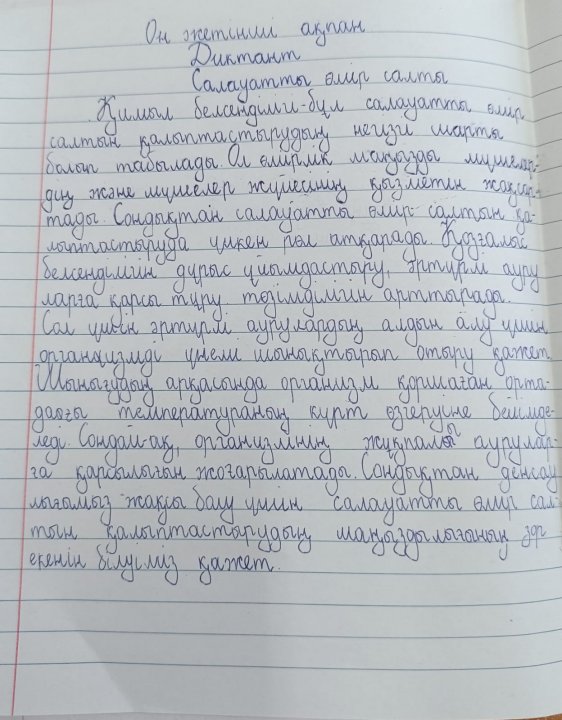 Он жетінші ақпан
Диктант
Салауатты өмір салты
Қимыл белсенділігі-бұл салауатты өмір
салтын қалыптастырудың негізгі шарты
болып табылады. Ол өмірлік маңызды мүшелер-
дің және мүшелер жүйесінің қызметін жақсар-
тады. Сондықтан салауатты өмір салтын қа-
лыптастыруда үлкен рөл атқарады. Қозғалыс
белсенділігін дұрыс ұйымдастыру, әртүрлі ауру
ларға қарсы тұру төзімділігін арттырады.
Сол үшін әртүрлі аурулардың алдын алу үшін
организмді үнем шынықтырып отыру қажет.
Шынығудың арқасында организм қоршаған орта-
дағы температураның күрт өзгеруіне бейімде-
леді. Сондай-ақ, организмнің жұқпалы аурулар-
ға қарсылығын жоғарылатады. Сондықтан денсау
лығымыз жақсы болу үшін салауатты өмір сал-
тын қалыптастырудың маңыздылығының зор
екенін білуіміз қажет.